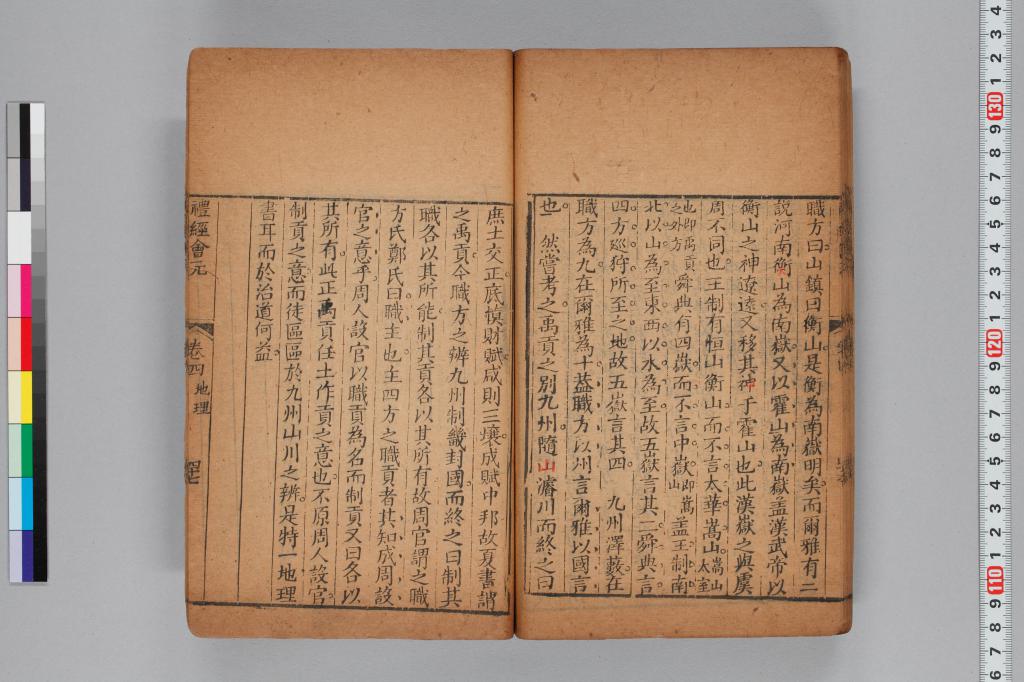 職方曰山鎮曰衡山是衡為南嶽明矣而爾雅有二
說河南衡山為南嶽又以霍山為南嶽盖漢武帝以
衡山之神遼遠又移其神于霍山也此漢嶽之與虞
周不同也王制有恒山衡山而不言太華嵩山嵩山太室
也即禹貢之外方舜典有四嶽而不言中嶽即嵩山盖王制南
北以山為至東西以水為至故五嶽言其二舜典言
四方廵狩所至之地故五嶽言其四 九州澤藪在
職方為九在爾雅為十蓋職方以州言爾雅以國言
也 然嘗考之禹貢之別九州隨山濬川而終之曰
庶土交正底慎財賦咸則三壤成賦中邦故夏書謂
之禹貢今職方之辨九州制畿封國而終之曰制其
職各以其所能制其貢各以其所有故周官謂之職
方氏鄭氏曰職主也主四方之職貢者其知成周設
官之意乎周人設官以職貢為名而制貢又曰各以
其所有此正禹貢任土作貢之意也不原周人設官
制貢之意而徒區區於九州山川之辨是特一地理
書耳而於治道何益
禮經會元
卷四 地理